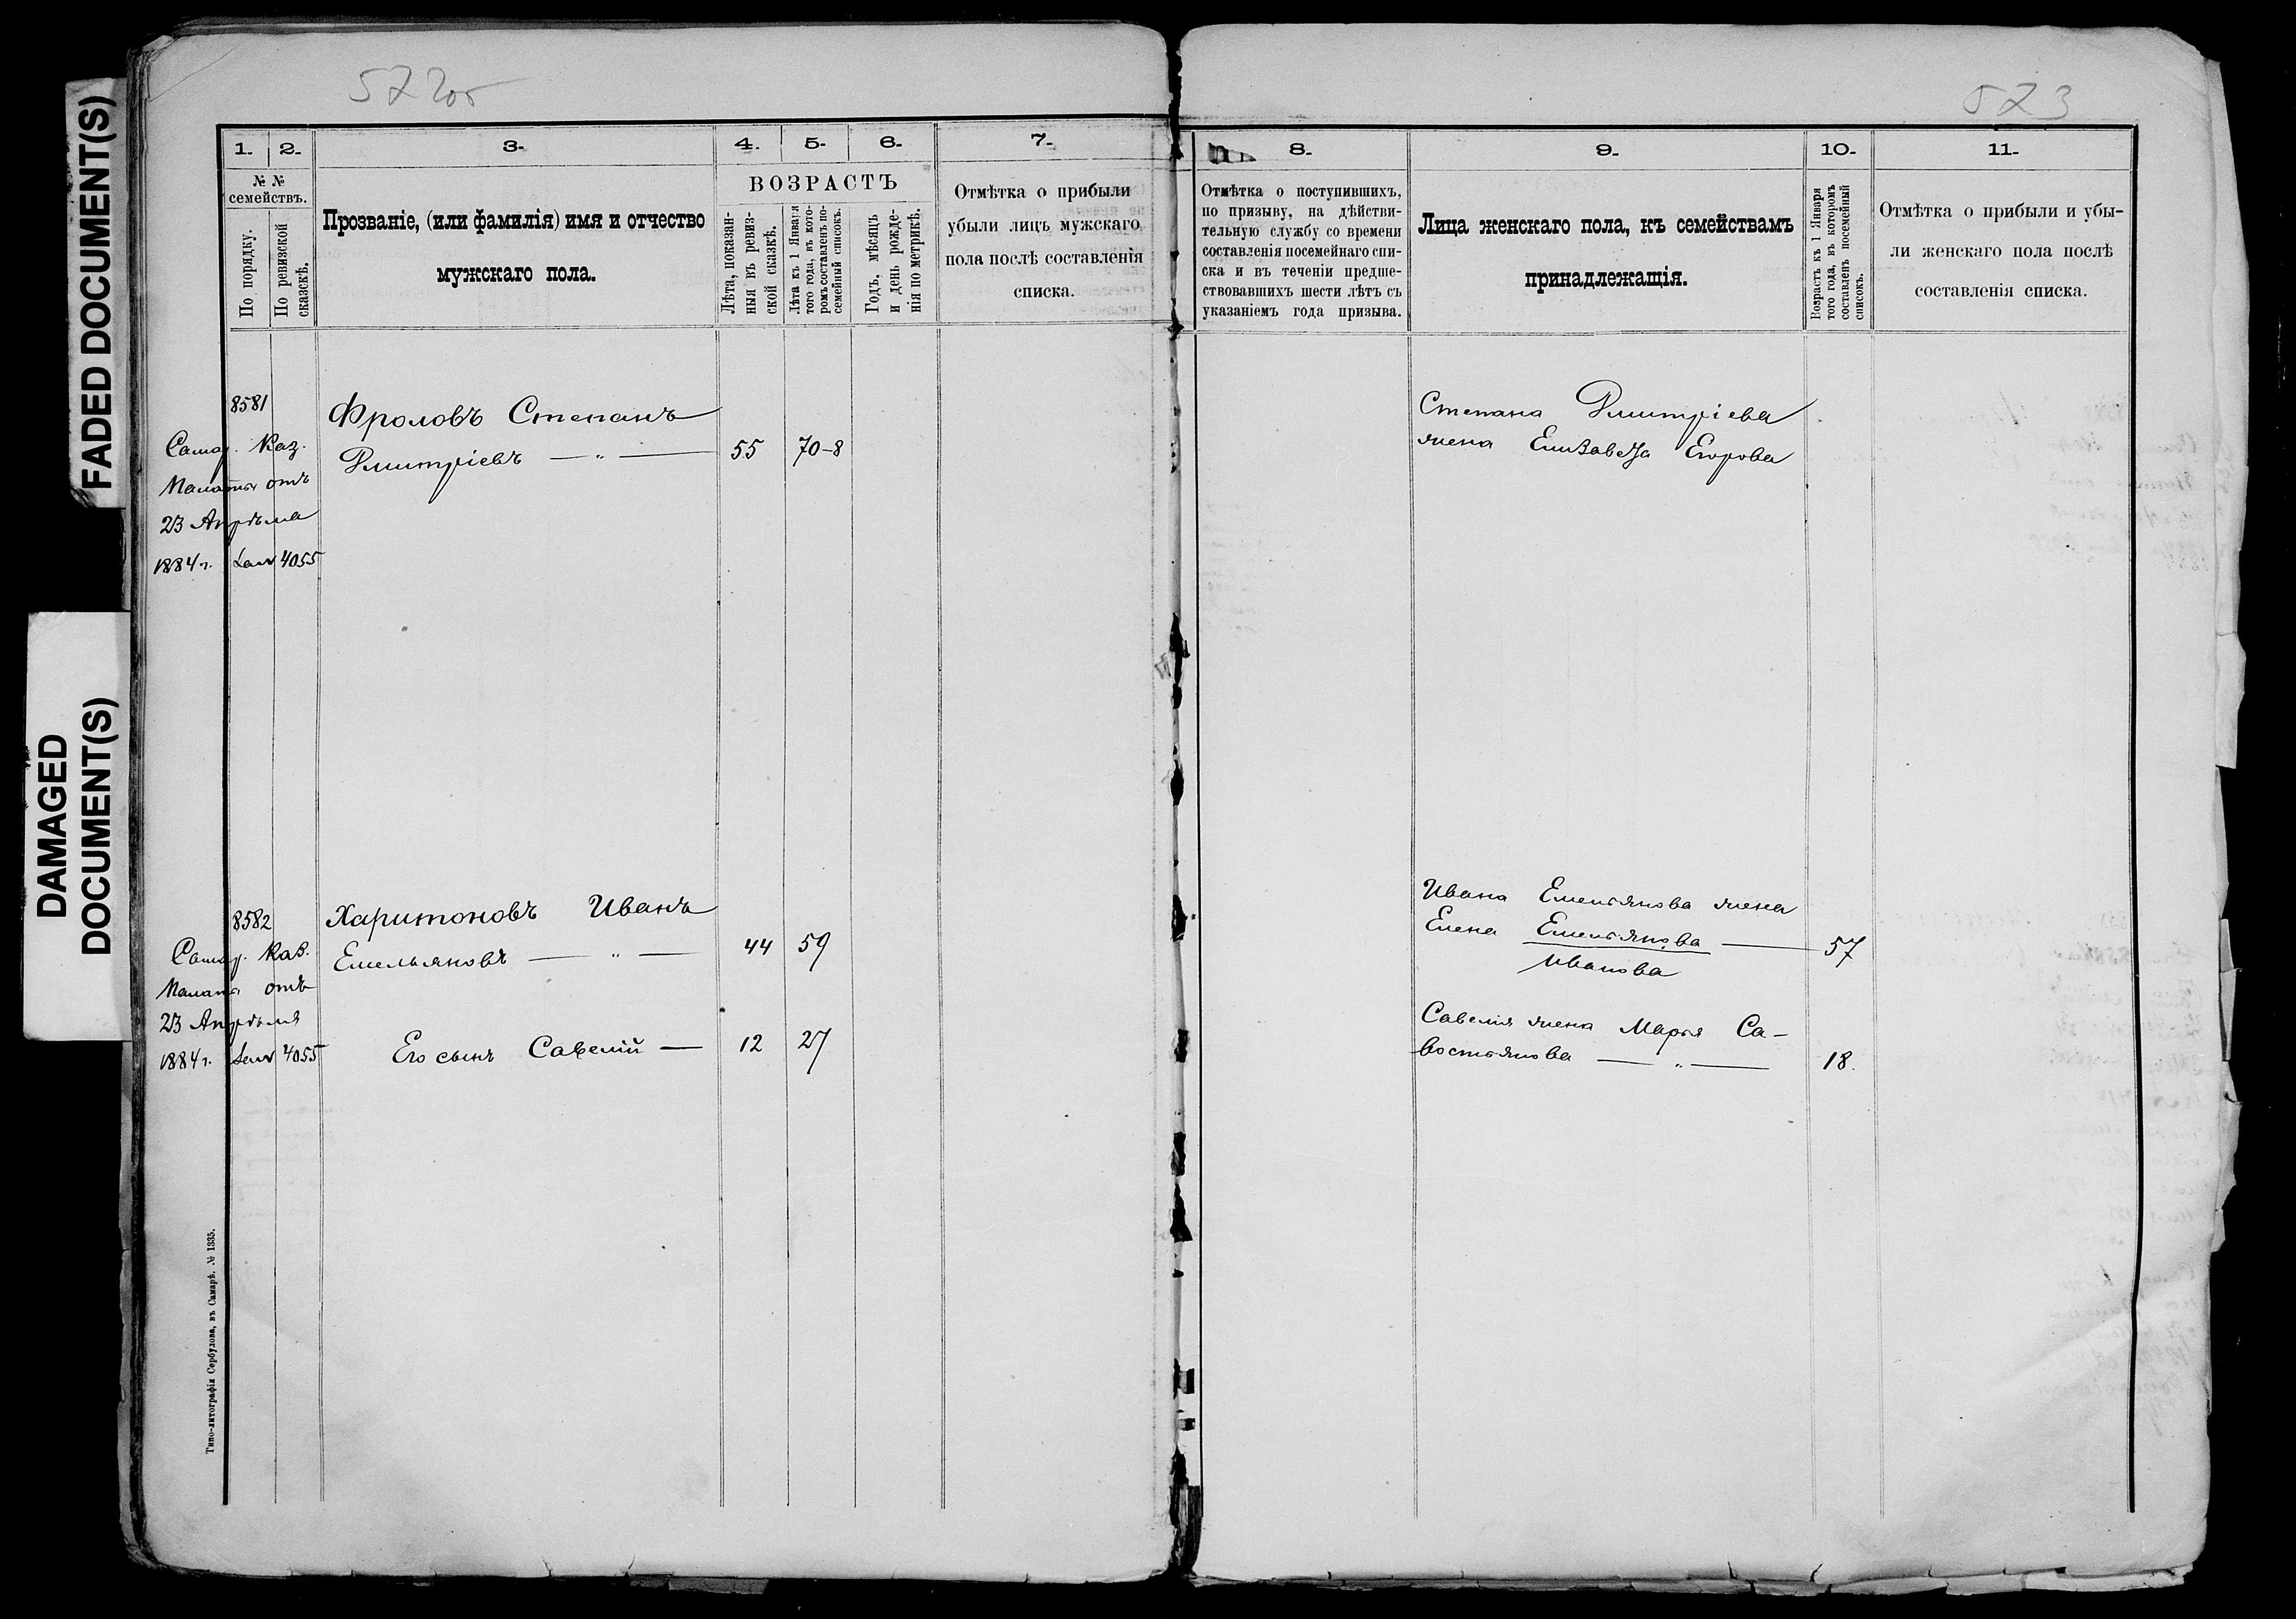 FADED DOCUMENT(S)
DAMAGED
DOCUMENT(S)
572об
1. 2. 3. 4. 5. 6. 7.
№ №
семействъ.
По порядку.
По ревизской
сказскѣ.
Прозваніе, (или фамилія) имя и отчество
мужскаго пола.
ВОЗРАСТЪ
Лѣта, показан-
ныя въ ревиз-
ской сказкѣ.
Лѣта къ 1 Января
того года, въ кото-
ромъ составленъ по-
семейный списокъ.
Годъ, мѣсяцъ
и день рожде-
нія по метрикѣ.
Отмѣтка о прибыли
убыли лицъ мужскаго
пола послѣ составленія
списка.
8581
Самар. Каз.
Палаты отъ
23 Апрѣля
1884 г. за № 4055
Фроловъ Степанъ
Дмитріевъ — „ — 55 70-8
8582
Самар. Каз.
Палаты отъ
23 Апрѣля
1884 г. за № 4055
Харитоновъ Иванъ
Емельяновъ — „ — 44 59
Его сынъ Савелій — 12 27
Типо-литографія Сербулова, въ Самарѣ. № 1335.
573
8. 9. 10. 11.
Отмѣтка о поступившихъ,
по призыву, на дѣйстви-
тельную службу со времени
составленія посемейнаго спи-
ска и въ теченіи предше-
ствовавшихъ шести лѣтъ съ
указаніемъ года призыва.
Лица женскаго пола, къ семействамъ
принадлежащія.
Возрастъ къ 1 Января
того года, въ которомъ
составленъ посемейный
списокъ.
Отмѣтка о прибыли и убы-
ли женскаго пола послѣ
составленія списка.
Степана Дмитріева
жена Елизавета Егорова
Ивана Емельянова жена
Елена Емельянова — 57
Иванова
Савелія жена Марья Са-
востьянова — „ — 18.